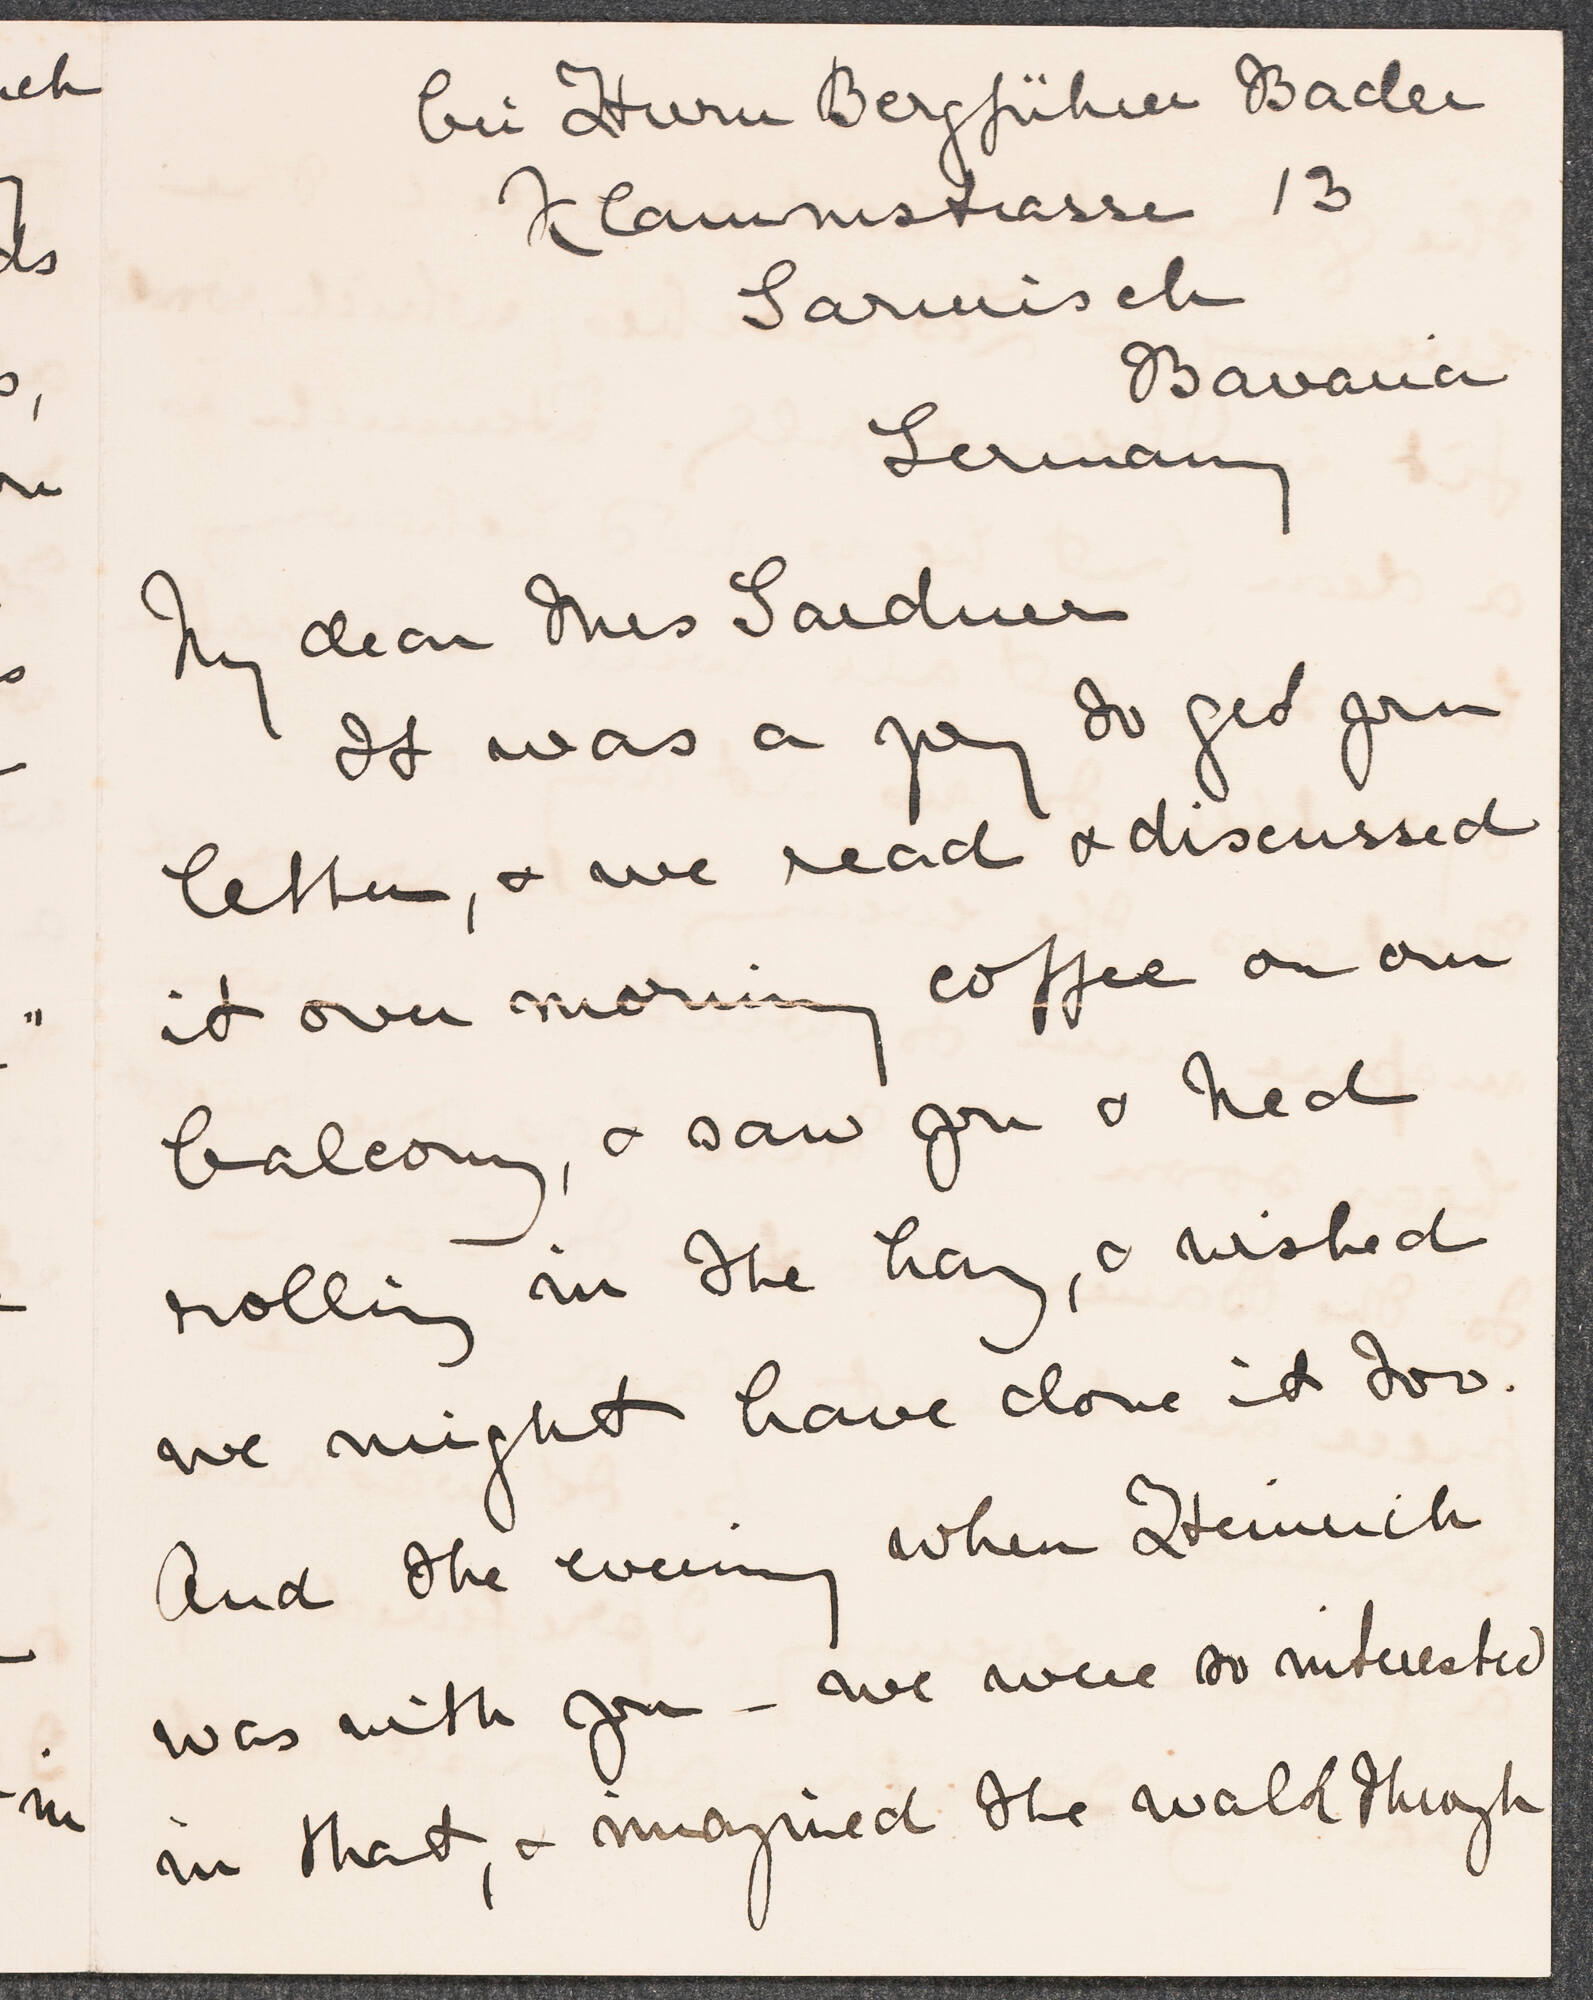 bei Herrn Bergführer Bader
Klammstrasse 13
Garmisch
Bavaria
Germany
My dear Mrs Gardner
It was a joy to get your
letter, & we read & discussed
it over morning coffee on our
balcony, & saw you & Ned
rolling in the hay, & wished
we might have done it too.
And the evening when Heinrich
was with you – we were so interested
in that, & imagined the walk through